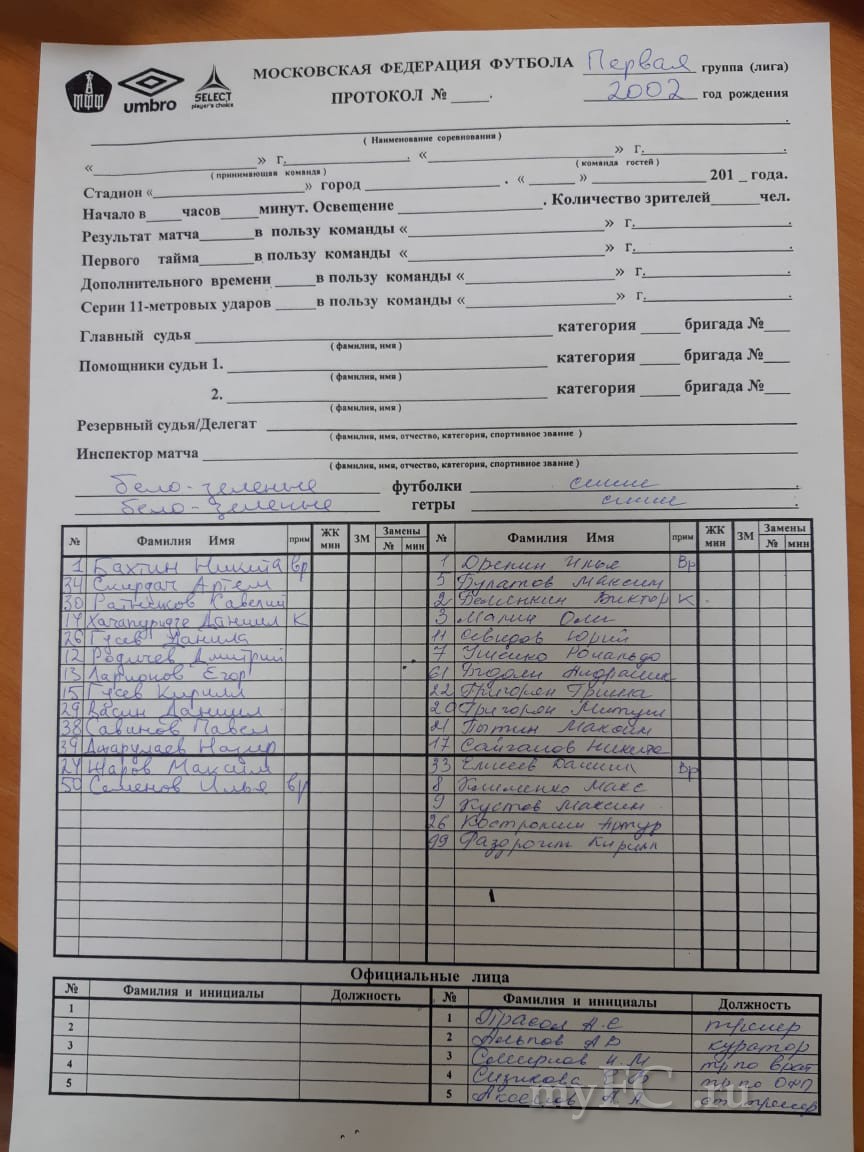 МФФ umbro SELECT player's choice
МОСКОВСКАЯ ФЕДЕРАЦИЯ ФУТБОЛА Первая группа (лига)
ПРОТОКОЛ № _____. 2002 год рождения
( Наименование соревнования )
« » г. . « » г. .
( принимающая команда ) ( команда гостей )
Стадион « » город . « » 201 _ года.
Начало в часов минут. Освещение . Количество зрителей чел.
Результат матча в пользу команды « » г. .
Первого тайма в пользу команды « » г. .
Дополнительного времени в пользу команды « » г. .
Серии 11-метровых ударов в пользу команды « » г. .
Главный судья категория бригада №
( фамилия, имя )
Помощники судьи 1. категория бригада №
( фамилия, имя )
2. категория бригада №
( фамилия, имя )
Резервный судья/Делегат
( фамилия, имя, отчество, категория, спортивное звание )
Инспектор матча
( фамилия, имя, отчество, категория, спортивное звание )
бело-зеленые футболки синие
бело-зеленые гетры синие
№ Фамилия Имя прим ЖК мин ЗМ Замены № мин № Фамилия Имя прим ЖК мин ЗМ Замены № мин
1 Бахтин Никита вр 1 Илья Вр
34 Скирдач Артем 5 Булатов Максим
30 Ратников 2 Белянкин Виктор К
17 Хачапуридзе Даниил К 3
26 Гусев Данила 11 Свидов Юрий
12 Родичев Дмитрий 7 Рональдо
13 Ларионов Егор 61
15 Гусев Кирилл 22 Григорян Гриша
29 Васин Даниил 20 Григорян
38 Савинов Павел 21 Пытин Максим
39 Джарулаев 17 Сайганов Никита
27 Жаров Максим 33 Елисеев Данила Вр
50 Семенов Илья вр 8 Клименко Макс
9 Кустов Максим
26 Артур
99 Кирилл
Официальные лица
№ Фамилия и инициалы Должность № Фамилия и инициалы Должность
1 1 Прасол А.Е тренер
2 2 А В куратор
3 3 Смирнов И.М тр по врат
4 4 тр по ОФП
5 5 А.А тренер
myFC.ru